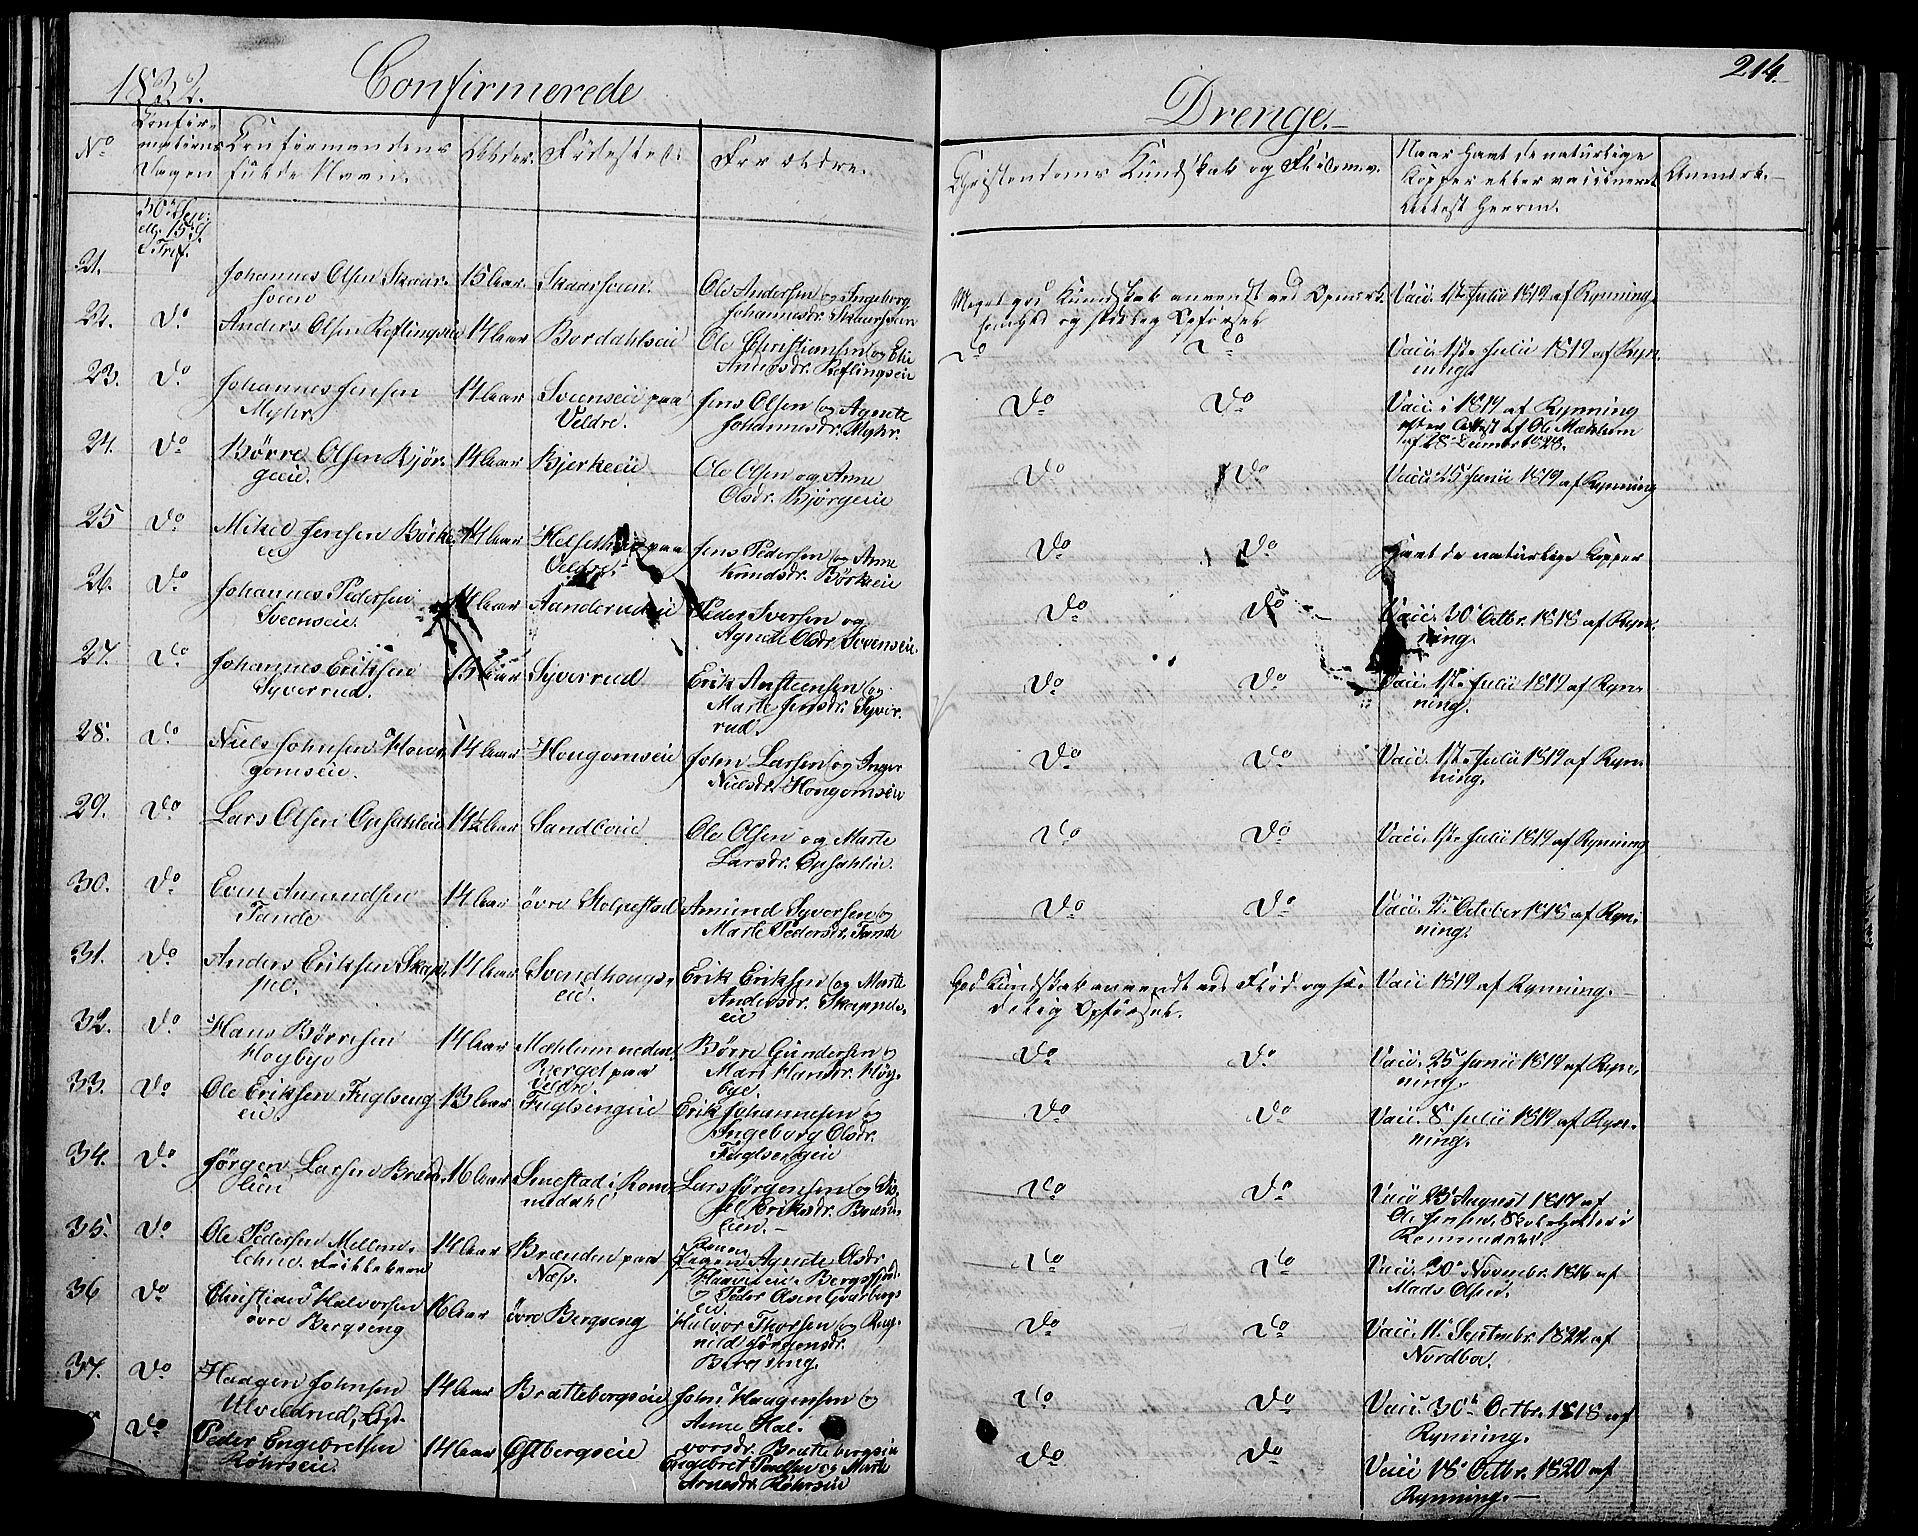 1832.
Confirmerede
Drenge.
214.
No
Confir-
mations
Dagen
Confirmandens
fulde Navn.
Alder.
Födested.
Forældre.
Christendoms Kundskab og Flid m.v.
Naar havt de naturlige
Kopper eller vaccineret
Attest herom.
Anmærk.
21.
Johannes Olsen Skaar-
sveen
15 Aar.
Skaarsveen.
Ole Andersen og Ingeborg
Johannesdr. Skaarsveen
Meget god Kundskab anvendt ved Opmærk-
somhed og sædelig Opförsel
Vacc. 1ste Julii 1819 af Rynning.
22.
Do
Anders Olsen Reflingseie
14 Aar
Bordahlseie
Ole Christiansen og Eli
Amundsdr. Reflingseie
Do
Do
Vacc. 1ste Julii 1819 af Ryn-
ning.
23.
Do
Johannes Jensen
Myhr.
14 Aar
Svenseie paa
Veldre.
Jens Olsen og Agnete
Johannesdr. Myhr.
Do
Do
Vacc. i 1819 af Rynning
efter Attest af Ole Mæhlum
24.
Do
Börre Olsen Björ-
geeie.
14 Aar
Bjerkeeie
Ole Olsen og Anne
Olsdr. Björgeeie
Do
Do
Vacc. 25 Junii 1819 af Rynning
25
Do
Mikel Jensen Börke-
eie
14 Aar
paa
Veldre.
Jens Pedersen og Anne
Knudsdr. Börkeeie
Do
Do
Havt de naturlige Kopper
26.
Do
Johannes Pedersen
Sveenseie.
14 Aar
Aanderudeie
Peder Iversen og
Agnete Olsdr. Svenseie.
Do
Do
Vacc. 30 Octbr. 1818 af Ryn-
ning.
27.
Do
Johannes Eriksen
Syverrud.
15 Aar
Syverrud
Erik Anstensen og
Marte Jensdr. Syver-
rud.
Do
Do
Vacc. 1ste Julii 1819 af Ryn-
ning.
28.
Do
Niels Johnsen Hou-
gomseie.
14 Aar
Hougomseie
John Larsen og Inger
Nielsdr. Hougomseie
Do
Do
Vacc. 1ste Julii 1819 af Ryn-
ning.
29.
Do
Lars Olsen Opsahleie
14½ Aar
Sandboeie
Ole Olsen og Marte
Larsdr. Opsahleie.
Do
Do
Vacc. 1ste Julii 1819 af Rynning
30.
Do
Even Amundsen
Tande
14 Aar
övre Stolpestad
Amund Syversen og
Marte Pedersdr. Tande
Do
Do
Vacc. 2 October 1818 af Ryn-
ning.
31.
Do
Anders Eriksen Skap-
pel.
14 Aar
Svendhougs-
eie.
Erik Eriksen og Marte
Andersdr. Skappels-
eie
God Kundskab anvendt ved Flid og sæ-
delig Opförsel.
Vacc. 1819 af Rynning.
32.
Do
Hans Börresen
Höybye
14 Aar
Mæhlum neden
Berget paa
Veldre.
Börre Gundersen og
Mari Hansdr. Höy-
bye
Do
Do
Vacc. 25 Junii 1819 af Ryn-
ning.
33.
Do
Ole Eriksen Fuglseng-
eie
13 Aar
Fuglsengeie
Erik Johannesen og
Ingeborg Olsdr.
Fuglsengeie
Do
Do
Vacc. 8 Julii 1819 af Ryn-
ning.
34.
Do
Jörgen Larsen Bræd-
lien
16 Aar
Smestad i Rom-
medahl
Lars Jörgensen og Si-
sel Eriksdr. Bræd-
lien.
Do
Do
Vacc. 23 August 1817 af
Ole Jensen, Skoleholder i
Rommedahl.
35.
Do
Ole Pedersen
14 Aar
Brænden paa
Næs.
Agnete Olsdr.
Do
Do
Vacc. 30 Novembr. 1816 af
Mads Olsen.
36
Do
Christian Halvorsen
övre Bergseng
16 Aar
övre Bergseng
Halvor Thorsen og Rag-
nild Jörgensdr.
Bergseng.
Do
Do
Vacc. 11 Septembr. 1822 af
Nordboe.
37.
Do
Haagen Johnsen
14 Aar
Brætteborgseie
John Haagensen og
Anne Hal-
vorsdr. Bratteborgseie
Do
Do
Vacc. 30 Octbr. 1818 af
Rynning.
Do
Peder Engebretsen
Röhrseie.
14 Aar
Ostbergseie
Engebret Povelsen og Marte
Arnesdr. Röhrseie
Do
Do
Vacc. 18 Octbr. 1820 af
Rynning.